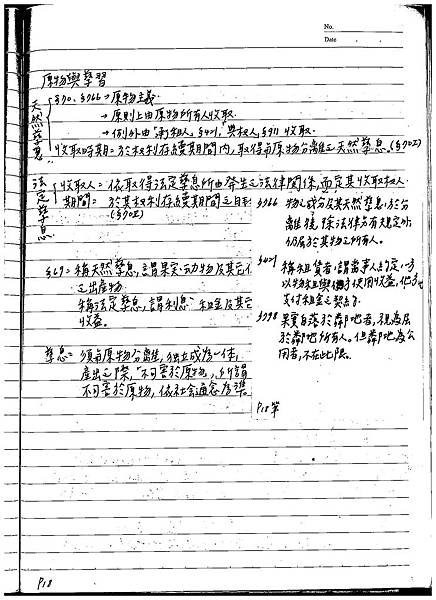 No.
Date
原物與孳息
天然孳息
§70、§766→原物主義.
→原則上由原物所有人收取.
→例外由「承租人」§421,典权人§911收取.
收取時期=於权利存續期間內,取得與原物分離之天然孳息.(§70Ⅰ)
法定孳息
收取人=依取得法定孳息所由發生之法律關係,而定其收取权人.
期間=於其权利存續期間之日
(§70Ⅱ)
§69=稱天然孳息,謂果实、动物及其它
之出產物.
稱法定孳息,謂利息、租金及其它
收益.
孳息=須與原物分離,独立成為一体,
產出之際,"不可害於原物",所謂
不可害於原物,依社会通念為準.
§766 物之成分及其天然孳息,於分
離後,除法律另有規定外,
仍屬於其物之所有人.
§421 稱租賃者,謂當事人約定,一方
以物租與他方使用收益,他方
支付租金之契約.
§798 果實自落於鄰地者,視為屬
於鄰地所有人。但鄰地為公
用者,不在此限.
P18筆
P18